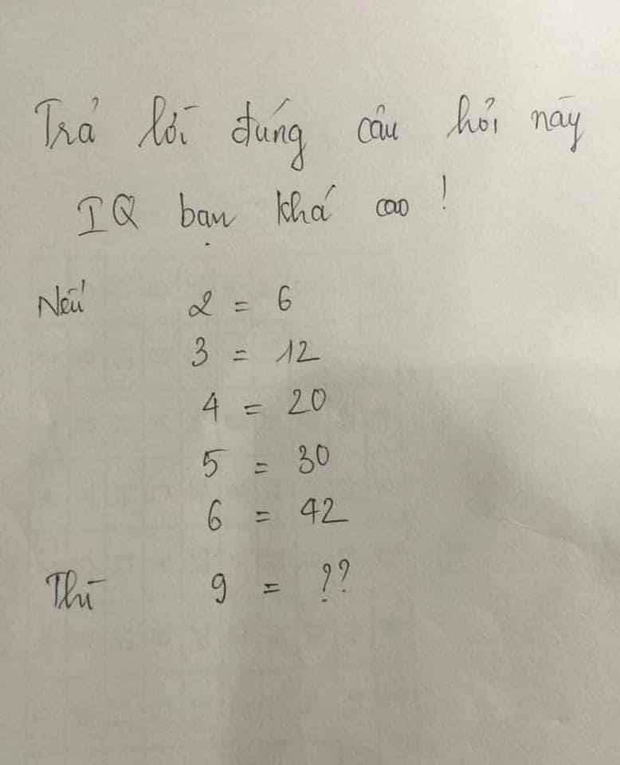 Trả lời đúng câu hỏi này
IQ bạn khá cao!
Nếu 2 = 6
3 = 12
4 = 20
5 = 30
6 = 42
Thì 9 = ??